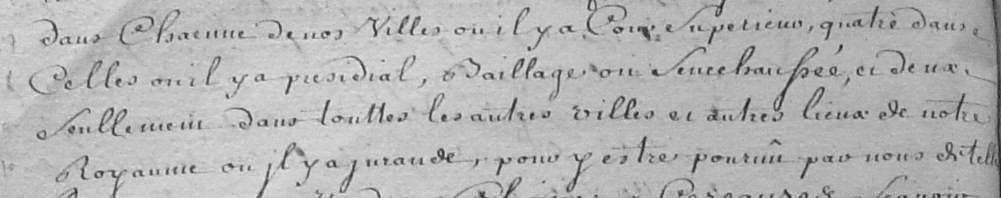 dans Chacune de nos Villes ou il y a Cour Superieur, quatre dans
Celles ou il y a presidial, Baillage ou Senechaussée, et deux
Seullement dans touttes les autres villes et autres lieux de notre
Royaume ou jl y a jurande, pour y estre pourvû par nous de tell